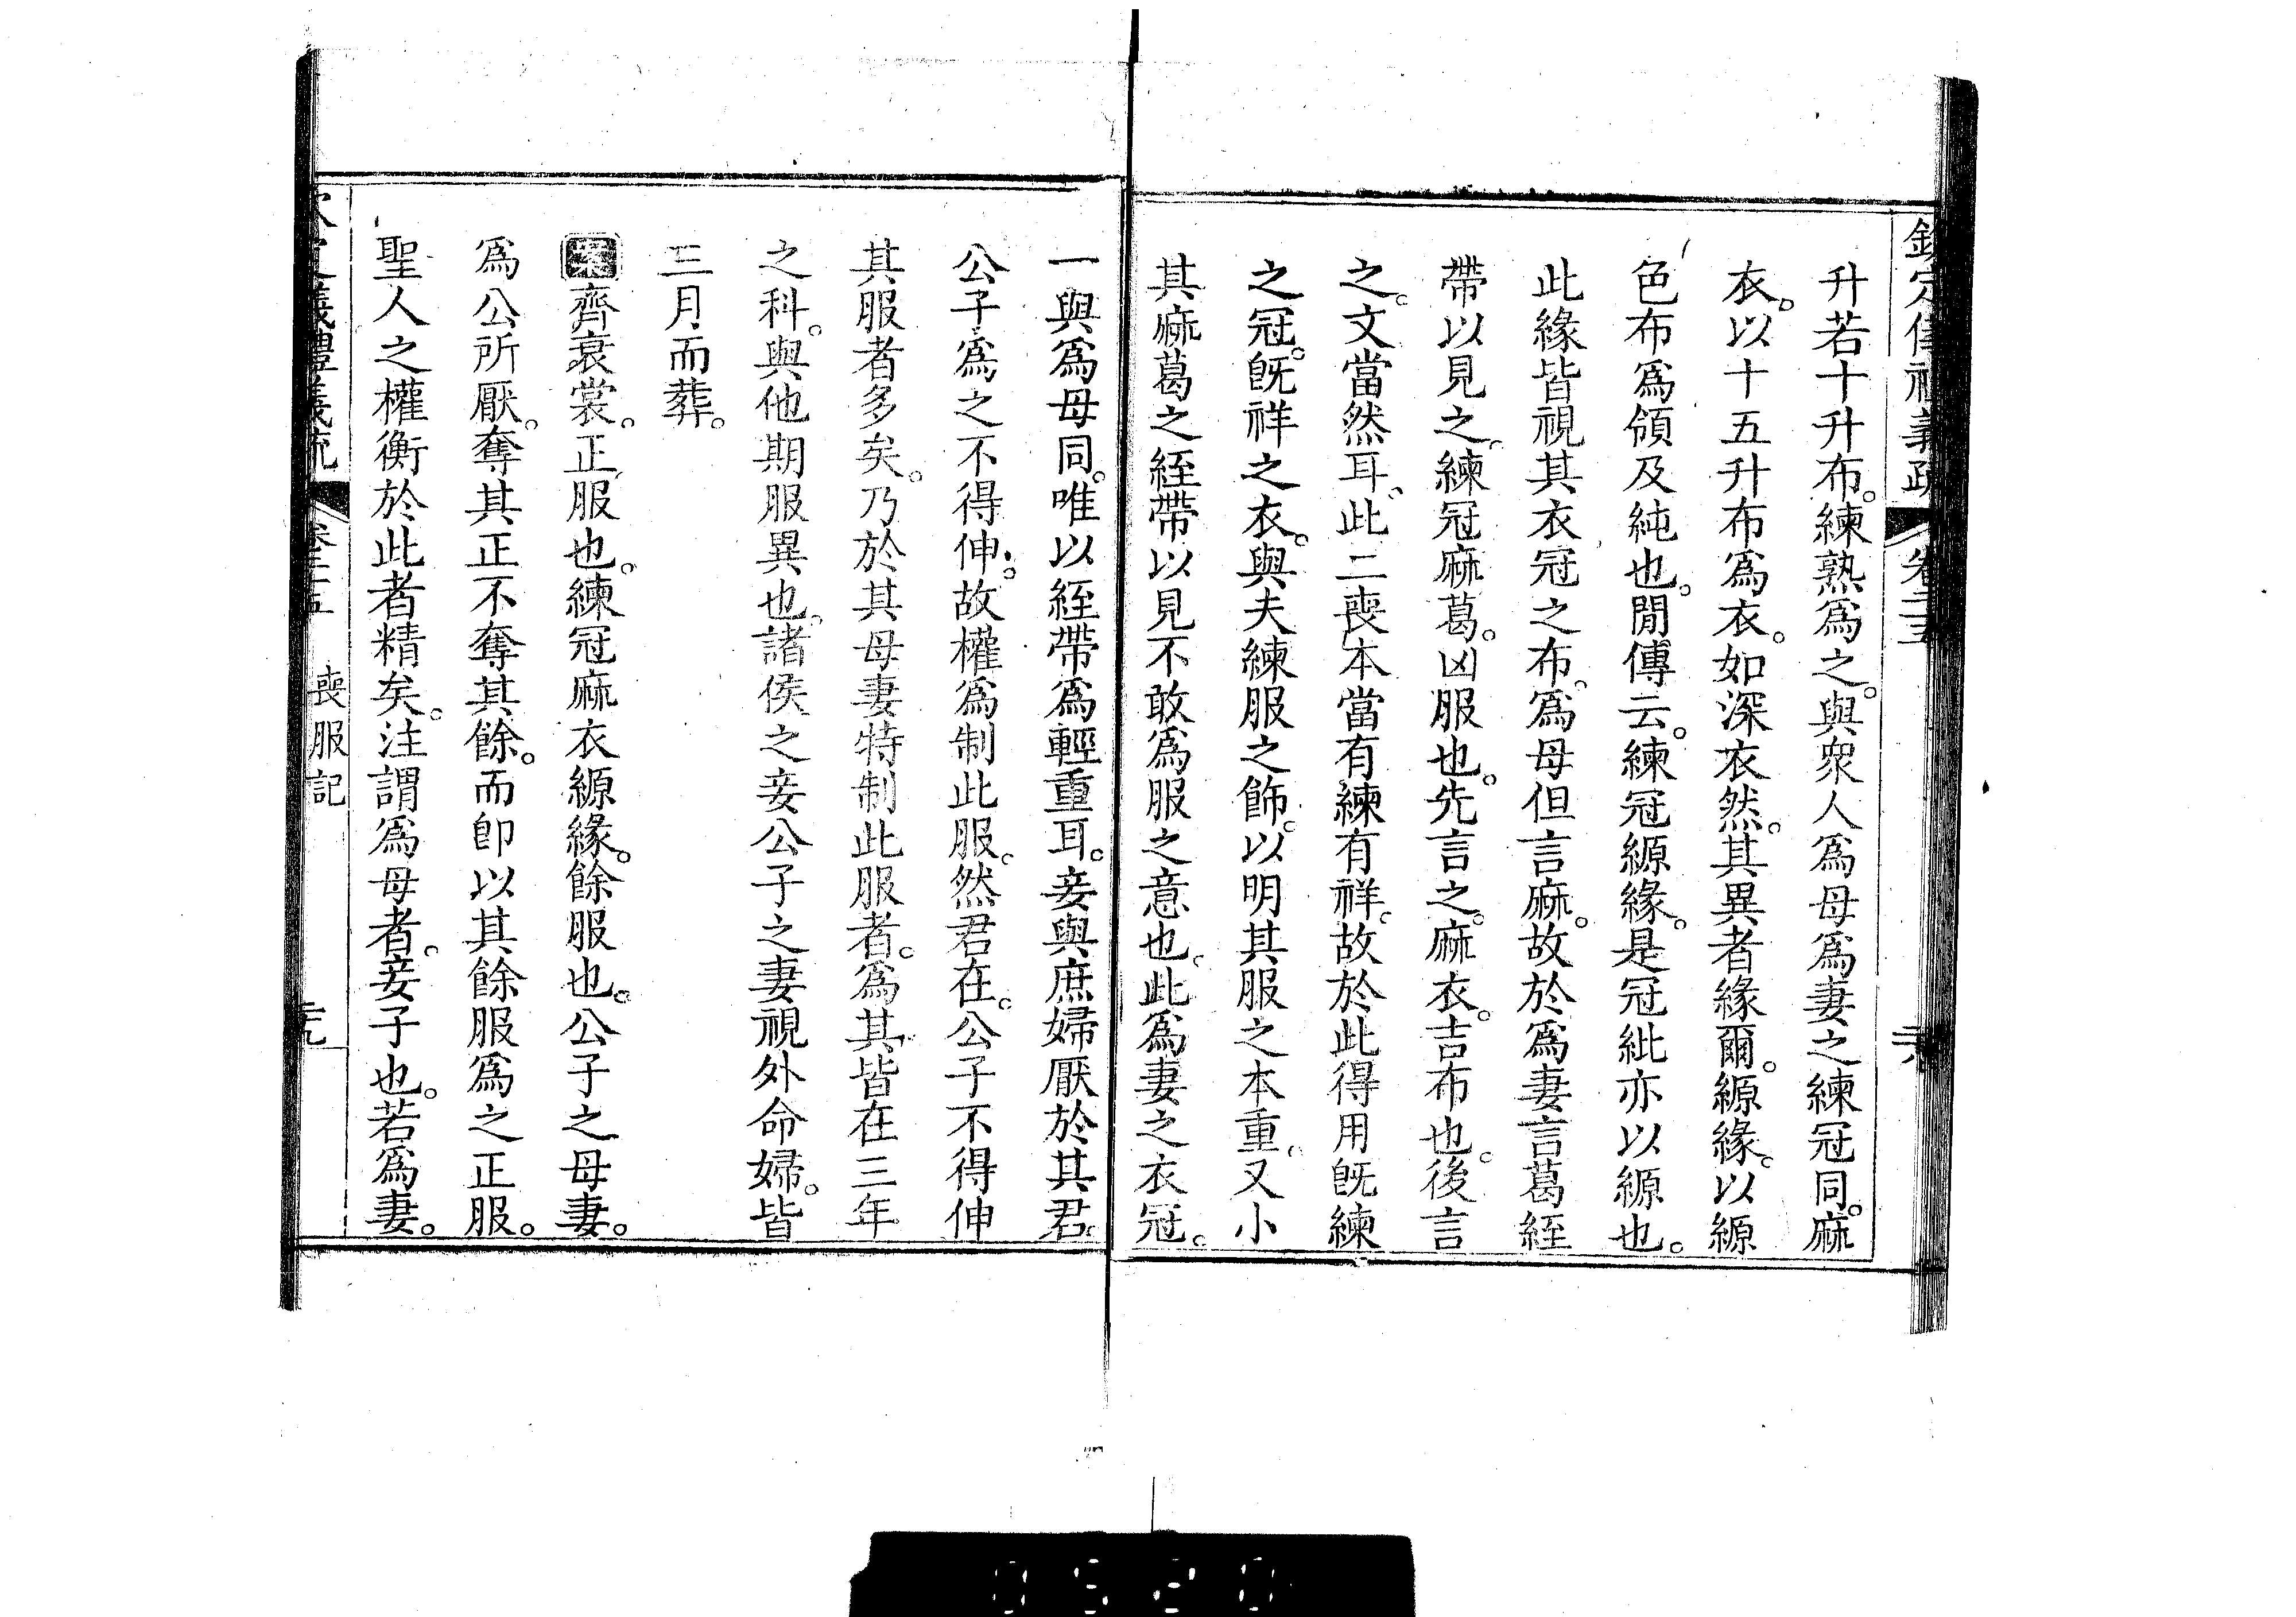 欽定儀禮義疏 卷二十五 二十八
升若十升布。練熟爲之。與衆人爲母爲妻之練冠同。麻
衣。以十五升布爲衣。如深衣然。其異者緣爾。縓緣。以縓
色布爲領及純也。閒傳云。練冠縓緣。是冠紕亦以縓也。
此緣皆視其衣冠之布。爲母但言麻。故於爲妻言葛絰
帶以見之。練冠麻葛。凶服也。先言之。麻衣。吉布也。後言
之。文當然耳。此二喪本當有練有祥。故於此得用旣練
之冠。旣祥之衣。與夫練服之飾。以明其服之本重。又小
其麻葛之絰帶以見不敢爲服之意也。此爲妻之衣冠。
一與爲母同。唯以絰帶爲輕重耳。妾與庶婦厭於其君。
公子爲之不得伸。故權爲制此服。然君在。公子不得伸
其服者多矣。乃於其母妻特制此服者。爲其皆在三年
之科。與他期服異也。諸侯之妾公子之妻視外命婦。皆
三月而葬。
案齊衰裳。正服也。練冠麻衣縓緣。餘服也。公子之母妻。
爲公所厭。奪其正不奪其餘。而卽以其餘服爲之正服。
聖人之權衡於此者精矣。注謂爲母者。妾子也。若爲妻。
欽定儀禮義疏 卷二十五 喪服記 二十九
0520